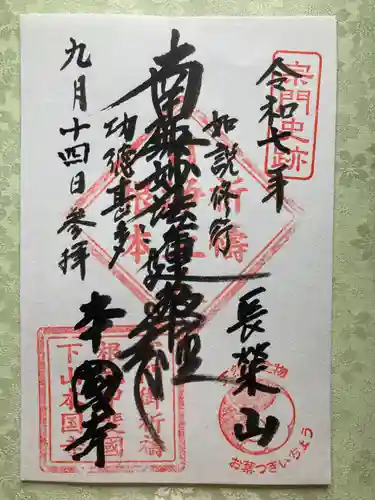 宗門史跡
令和七年
長榮山
如説修行
南無妙法蓮華経
功徳甚多
九月十四日参拝
本國寺
祈禱
根本
下山本国寺
お葉つきいちょう